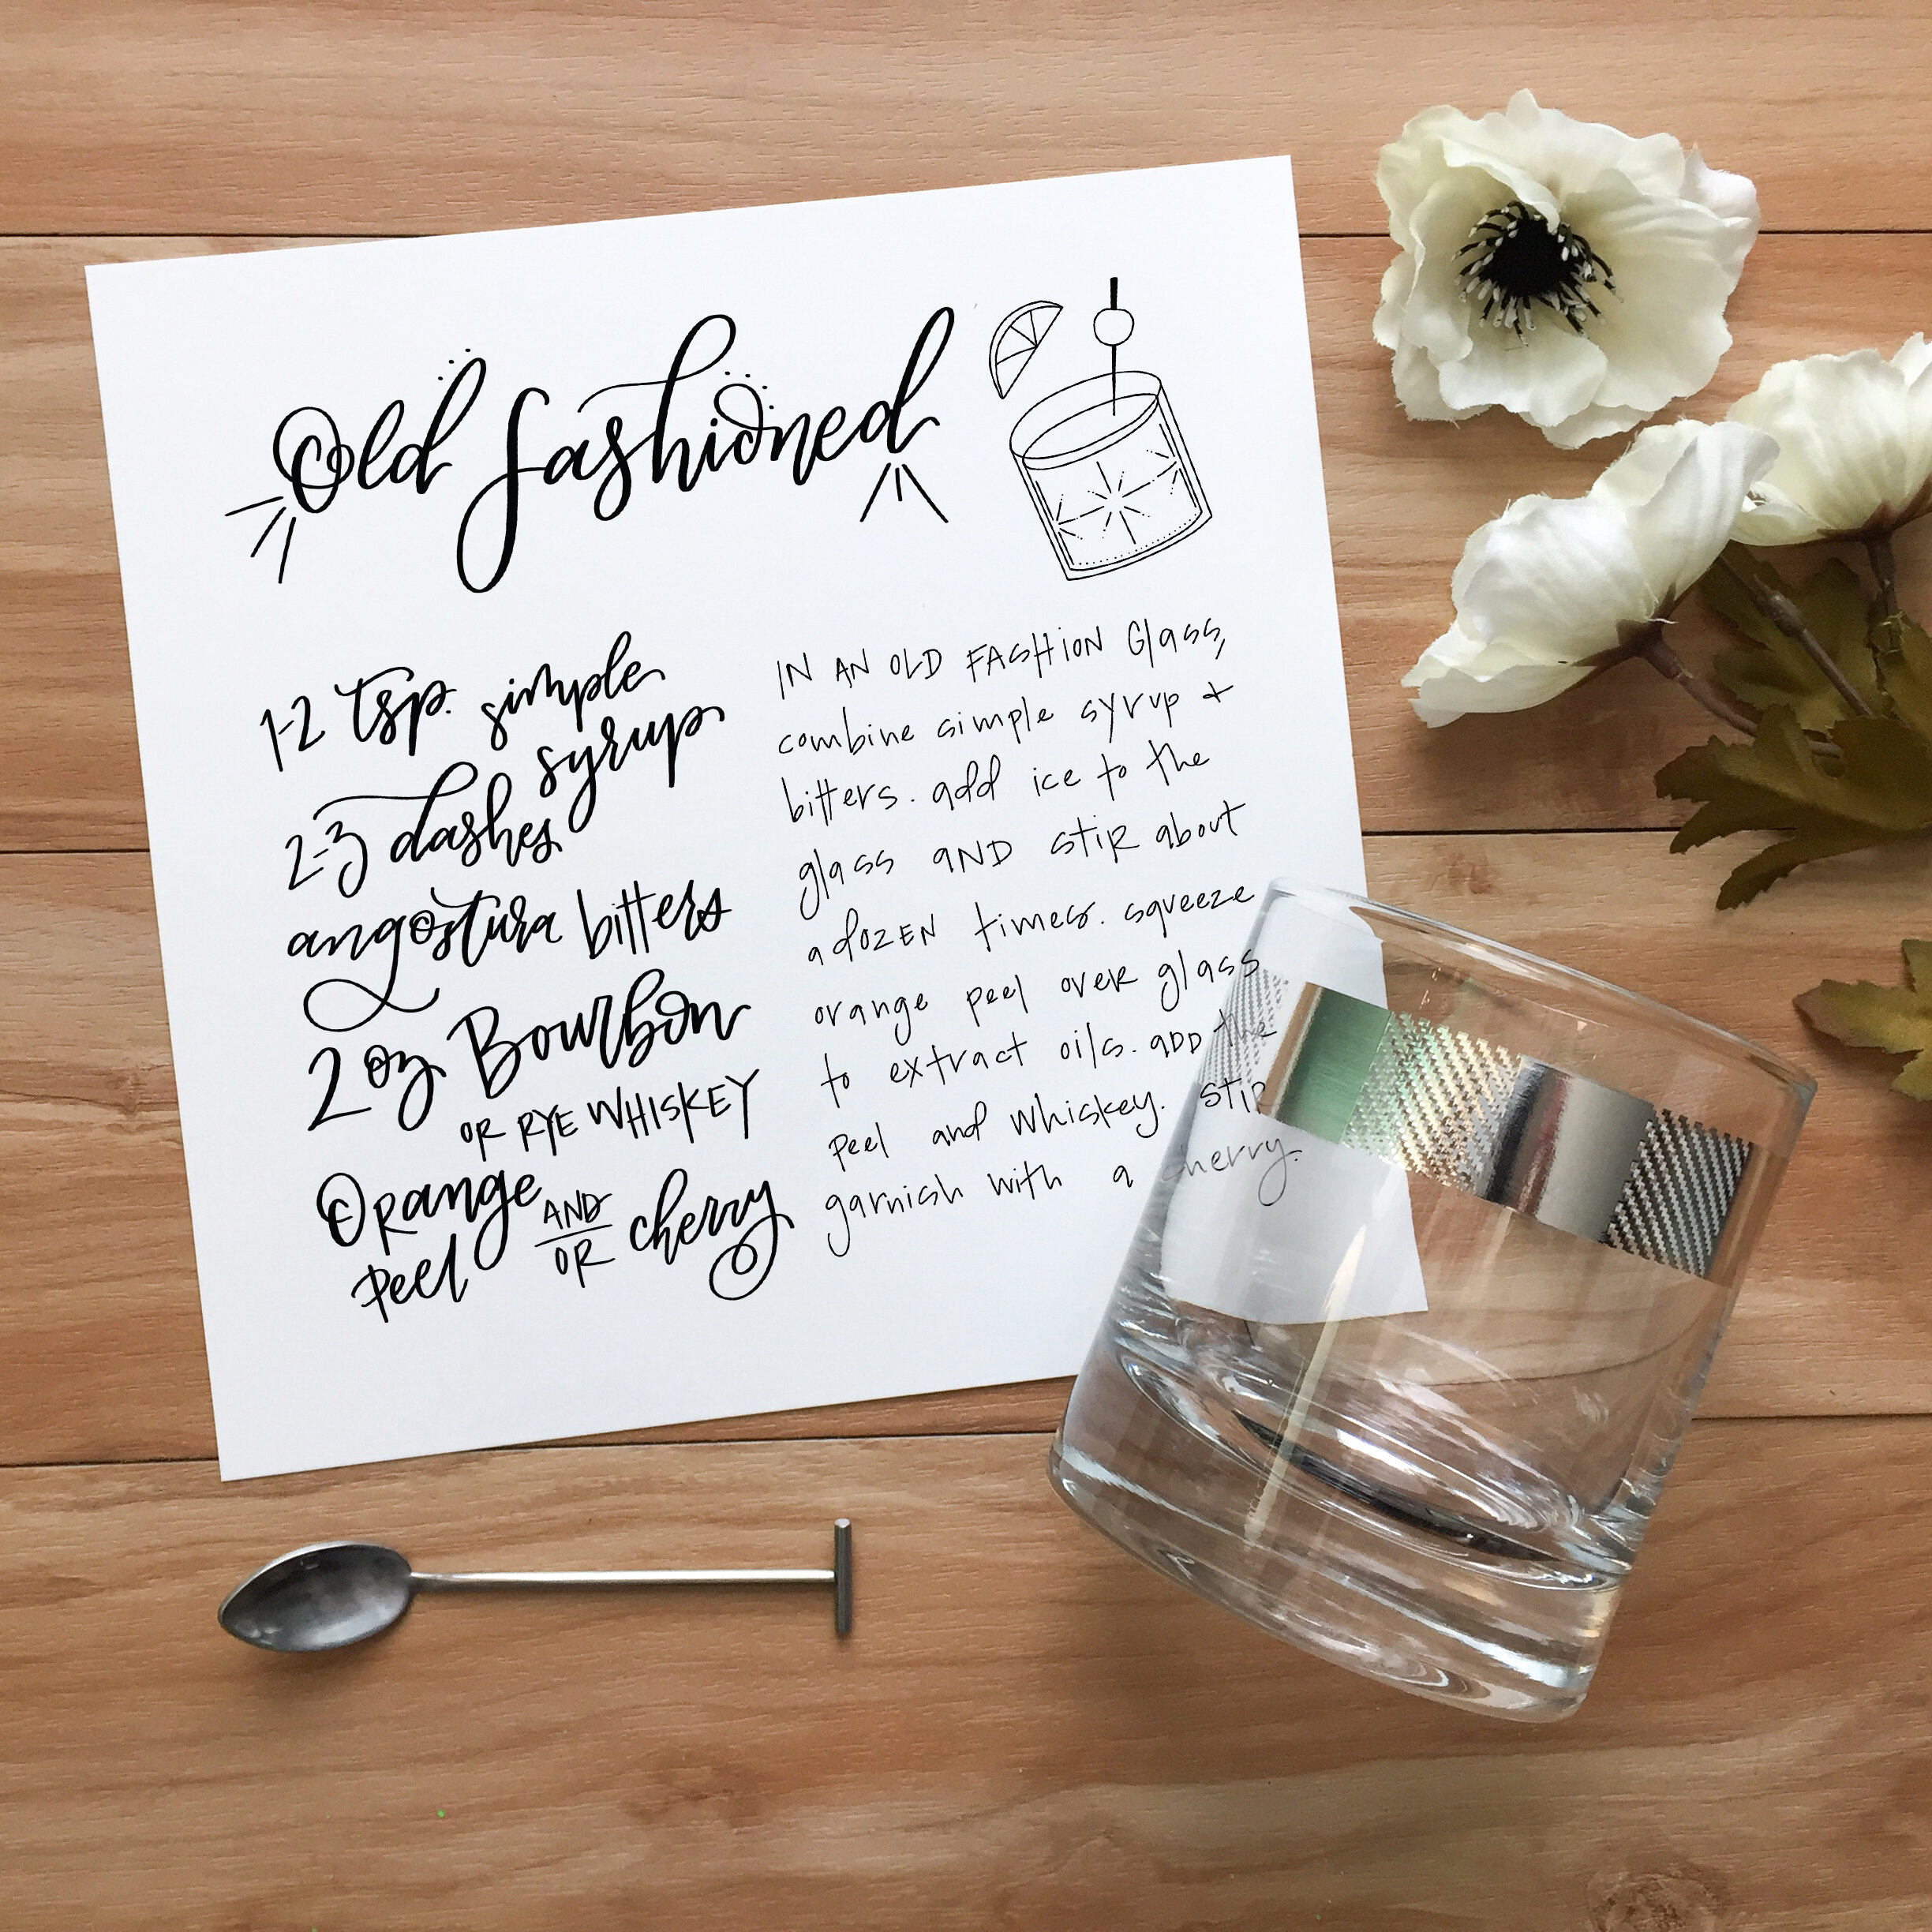 Old fashioned
1-2 tsp. simple
syrup
2-3 dashes
angostura bitters
2 oz Bourbon
OR RYE WHISKEY
Orange AND OR cherry
Peel
IN AN OLD FASHION Glass,
combine simple syrup +
bitters. add ice to the
glass AND stir about
a dozen times. squeeze
orange peel over glass
to extract oils. ADD the
peel and whiskey. stir
garnish with a cherry.